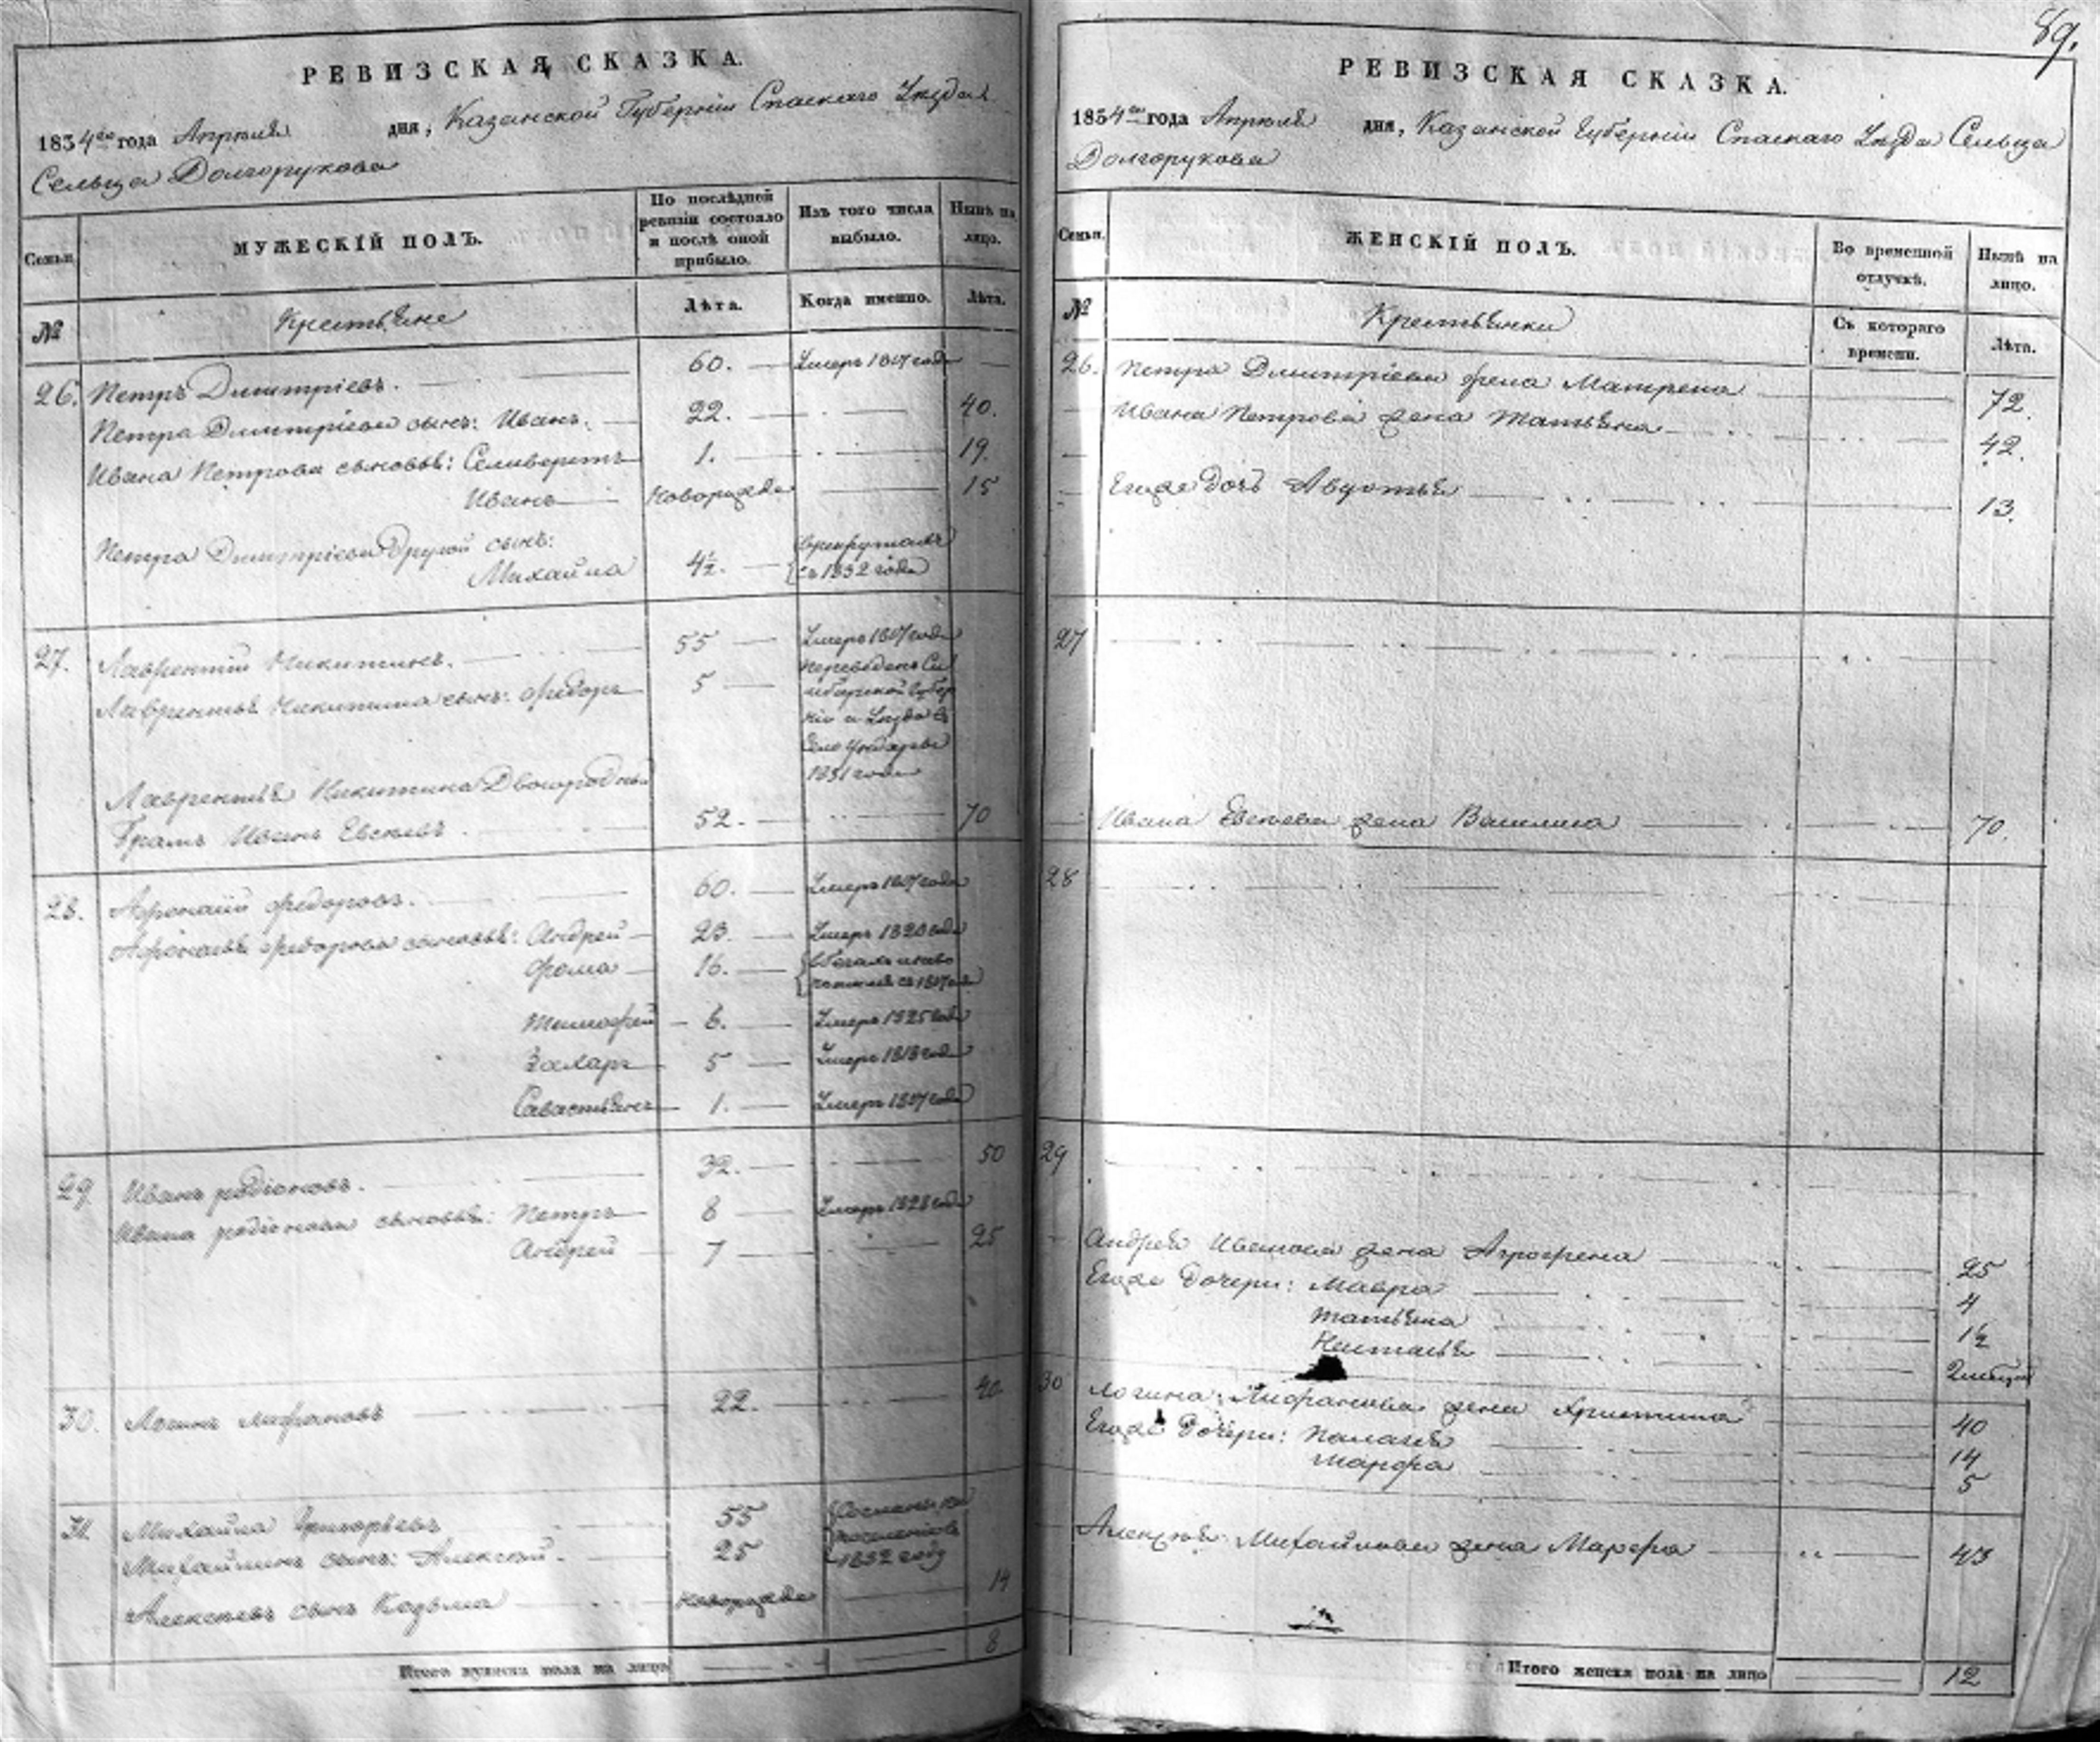 РЕВИЗСКАЯ СКАЗКА.
1834го года Апреля дня, Казанской Губернiи Спаскаго Уезда
Сельца Долгорукова
Семьи.
МУЖЕСКІЙ ПОЛЪ.
По послѣдней ревизіи состояло и послѣ оной прибыло.
Изъ того числа выбыло.
Нынѣ на лицо.
№
Крестьяне
Лѣта.
Когда именно.
Лѣта.
26. Петръ Димитріевъ. 60. Умеръ 1817 года
Петра Димитріева сынъ: Иванъ. 22. 40.
Ивана Петрова сыновья: Селиверстъ 1. 19.
Иванъ новорожде 15
Петра Димитріева другой сынъ:
Михайла 4½. в рекрутахъ съ 1832 года
27. Лаврентій Никитинъ. 55 Умеръ 1817 года
Лаврентья Никитина сынъ: Федоръ 5 переведенъ Сим
бирской Губер
ніи и Уезда в
село
1831 года
Лаврентья Никитина двоюродный
братъ Иванъ Евсеевъ 52. 70
28. Афонасій Федоровъ. 60. Умеръ 1817 года
Афонасья Федорова сыновья: Андрей 23. Умеръ 1820 года
Фома 16. в бегахъ съ 1817 года
Тимофей 6. Умеръ 1825 года
Захаръ 5 Умеръ 1818 года
Савастьянъ 1. Умеръ 1817 года
29. Иванъ родіоновъ. 32. 50
Ивана родіонова сыновья: Петръ 8 Умеръ 1828 года
Андрей 7 25
30. Логинъ 22. 40
31. Михайла Григорьевъ 55 Сосланы на
Михайлинъ сынъ: Алексей. 25 поселеніе 1832 году
Алексеевъ сынъ Козьма новорожде 14
Итого мужеска пола на лицо 8
89.
РЕВИЗСКАЯ СКАЗКА.
1834го года Апреля дня, Казанской Губерніи Спаскаго Уезда Сельца
Долгорукова
Семьи.
ЖЕНСКІЙ ПОЛЪ.
Во временной отлучкѣ.
Нынѣ на лицо.
№
Крестьянки
Съ котораго времени.
Лѣта.
26. Петра Димитріева жена Матрена 72.
Ивана Петрова жена Татьяна 42.
Егоже дочь Авдотья 13.
27
Ивана Евсеева жена Василиса 70.
28
29
Андрея Иванова жена Агрофена 25
Егоже дочери: Мавра 4
Татьяна 1½
Наталья 2 месяца
30 Логина жена Христина 40
Егоже дочери: Палагея 14
Марфа 5
Алексея Михайлова жена Марфа 43
Итого женска пола на лицо 12